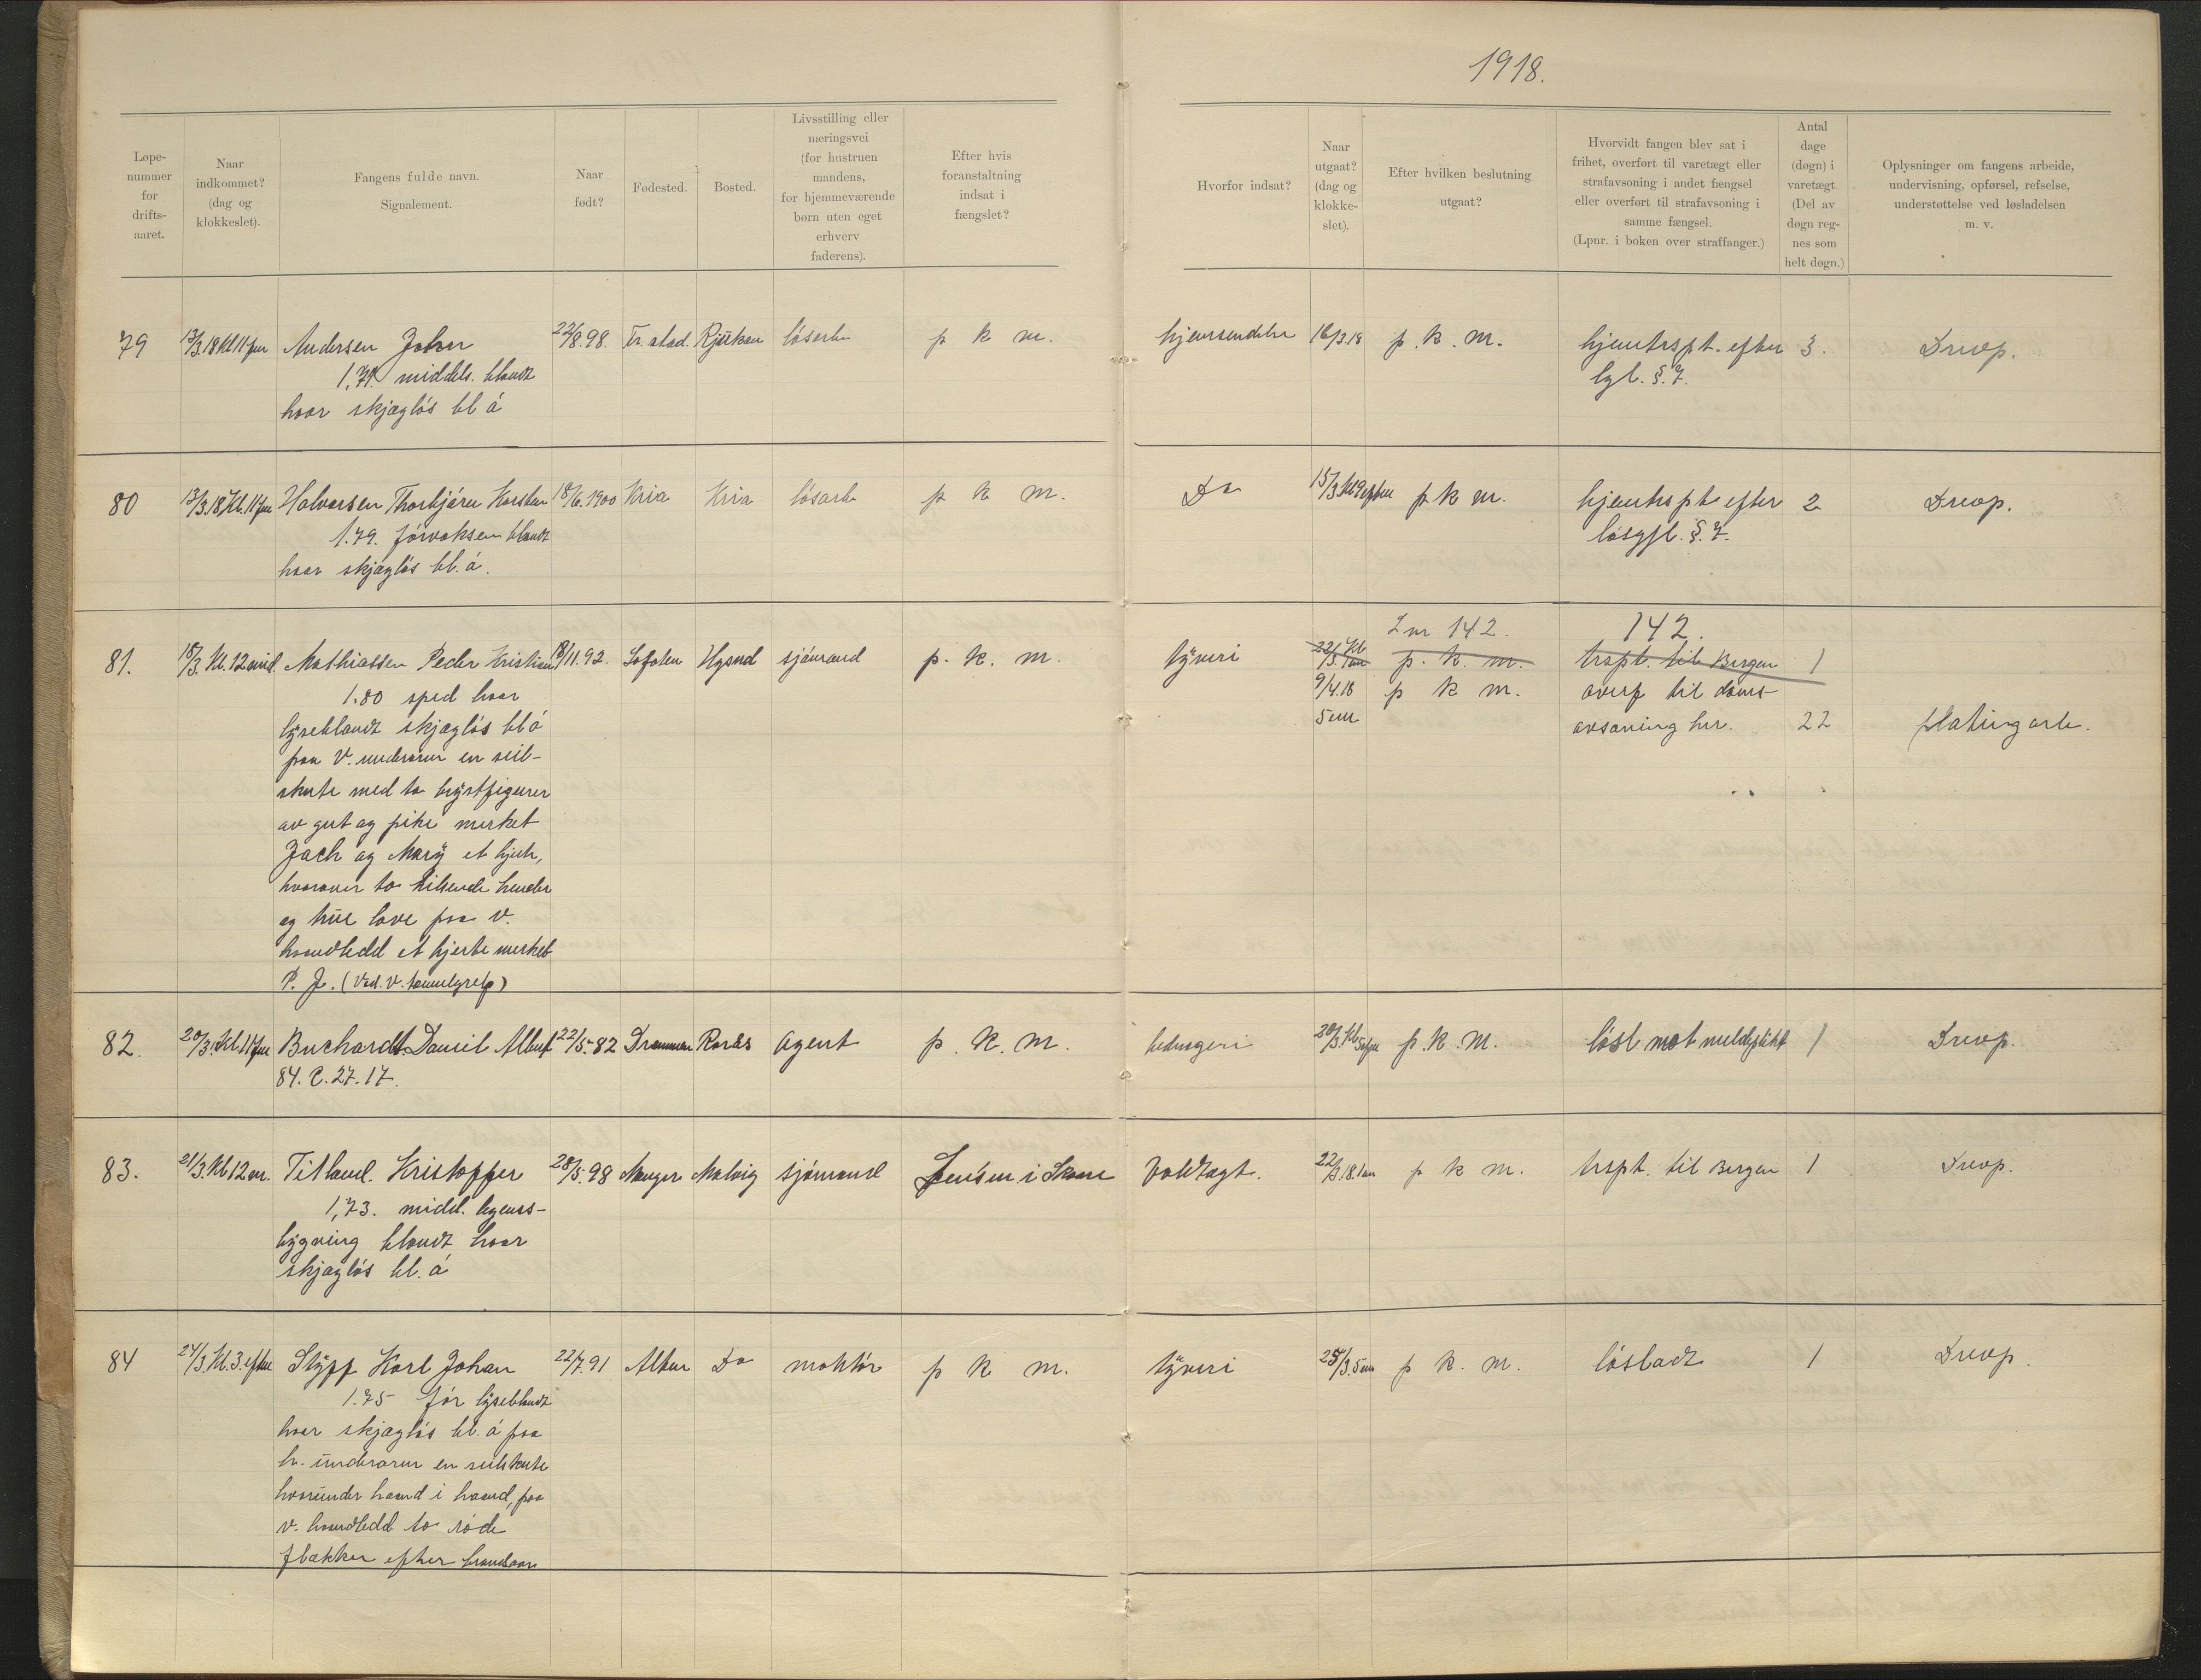 1918.
Løpe-
nummer
for
drifts-
aaret.
Naar
indkommet?
(dag og
klokkeslet).
Fangens fulde navn.
Signalement.
Naar
født?
Fødested.
Bosted.
Livsstilling eller
næringsvei
(for hustruen
mandens,
for hjemmeværende
børn uten eget
erhverv
faderens).
Efter hvis
foranstaltning
indsat i
fængslet?
Hvorfor indsat?
Naar
utgaat?
(dag og
klokke-
slet).
Efter hvilken beslutning
utgaat?
Hvorvidt fangen blev sat i
frihet, overført til varetægt eller
strafavsoning i andet fængsel
eller overført til strafavsoning i
samme fængsel.
(Lpnr. i boken over straffanger.)
Antal
dage
(døgn) i
varetægt.
(Del av
døgn reg-
nes som
helt døgn.)
Oplysninger om fangens arbeide,
undervisning, opførsel, refselse,
understøttelse ved løsladelsen
m. v.
79 13/3.18 Kl 11 fm Andersen Johan 22/8.98. Fr.stad. Rjukan løsarb p k m. hjemsendelse 16/3.18 p. k. m. hjemtrspt. efter 3.
1,71 middels. blondt lgl. §. 7.
haar skjægløs bl ø
80 13/3.18 Kl. 11 fm Halvorsen Thorbjørn Karsten 18/6.1900 Kria Kria løsarb p k m. Do 15/3 Kl 9 eftm p k m. hjemtrspt efter 2
1.79. førvoksen blondt løsgjl. §. 7.
haar skjægløs bl. ø.
81. 18/3. Kl. 12 mid. Mathiassen Peder Kristian 18/11.92. Lofoten sjømand p. k. m. tyveri Lnr 142. 142.
p. k. m. trspt. til Bergen 1
1.80 sped haar 9/4.18 p k m. overf til doms-
lyseblondt skjægløs bl ø 5 em avsoning her. 22
paa v. underarm en seil-
skute med to brystfigurer
av gut og pike merket
Jack og Mary et hjerte,
hvorover to hilsende hender
og true love paa v.
haandledd et hjerte merket
P. J. (Ved. v. tommelgrep)
82. 20/3. Kl. 11 fm Buchardt Daniel Albert 22/5.82 Drammen Rorås agent p. k. m. bedrageri 20/3. Kl 5 efm p. k. M. løsl mot meldeplikt 1
84. C. 27. 17.
83. 21/3. Kl 12 m. Titland. Kristoffer 28/5.98 Manger Malvig sjømand Lensm i Skaare Voldtægt. 22/3.18. 1 am p k m. trspt. til Bergen 1
1,73. midd. legems-
bygning blondt haar
skjægløs bl. ø
84 24/3. Kl. 3. eftm Stypp Karl Johan 22/7.91 Do p k m. tyveri 25/3. 5 em p k. m. løsladt 1
1.75 før lyseblondt
haar skjægløs bl. ø paa
h. underarm en seilskute
hvorunder haand i haand, paa
v. haandledd to røde
flækker efter brandsaar